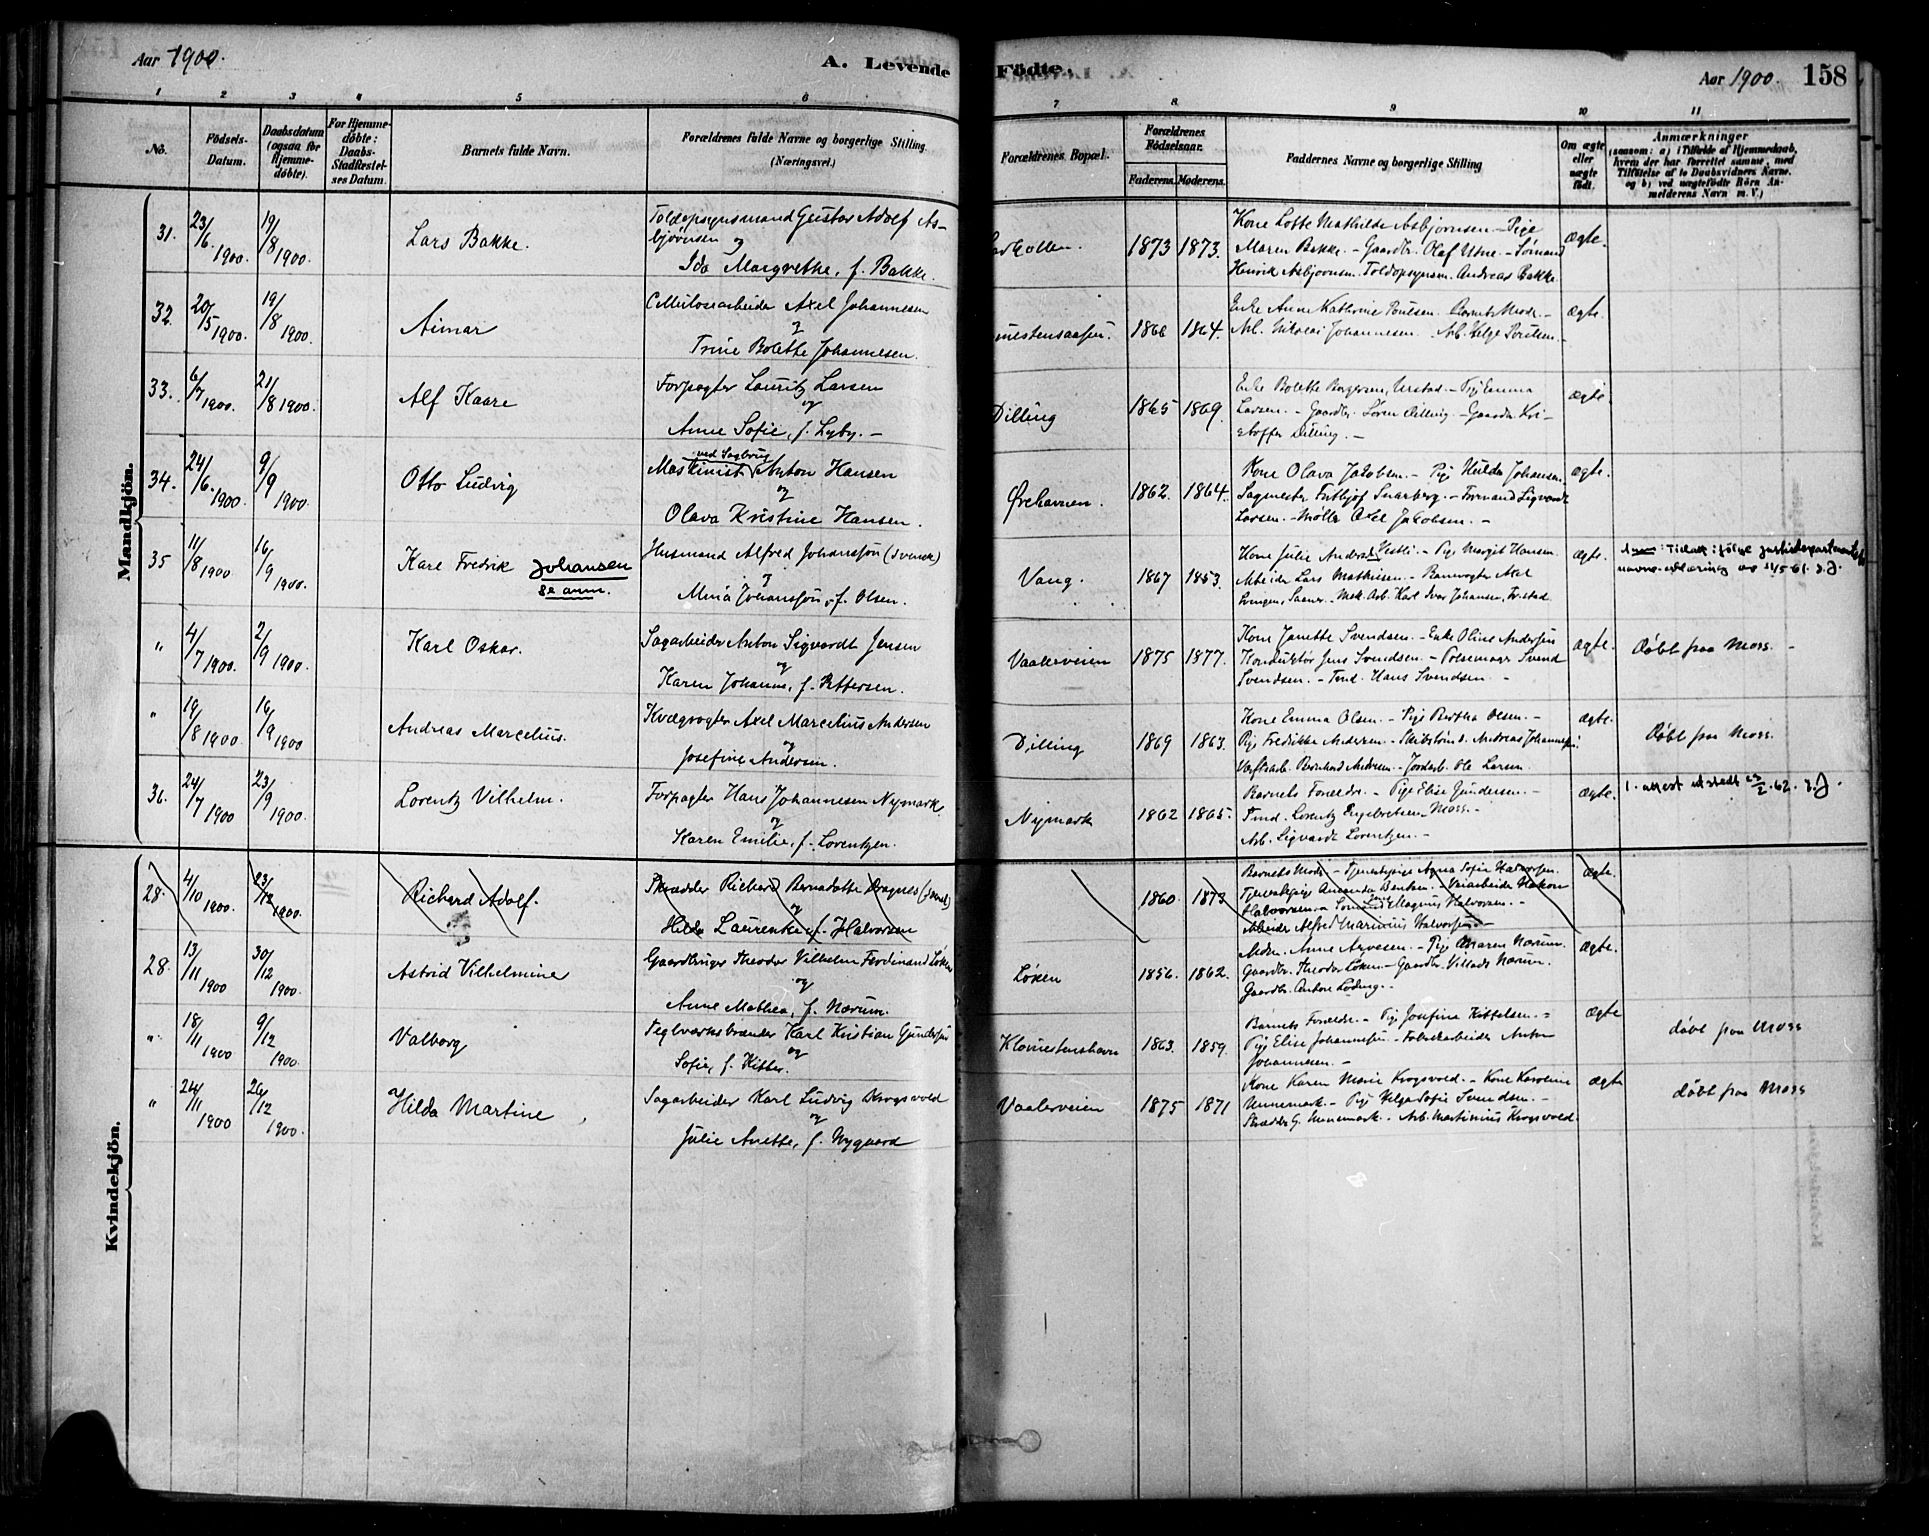 Aar 1900.
A. Levende
Födte.
Aar 1900.
158
1 2 3 4 5 6 7 8. 9 10 11
No.
Födsels-
Datum.
Daabsdatum
(ogsaa for
Hjemme-
döbte).
For Hjemme-
döbte:
Daabs-
Stadfæstel-
ses Datum.
Barnets fulde Navn.
Forældrenes fulde Navne og borgerlige Stilling
(Næringsvei.)
Forældrenes Bopæl.
Forældrenes
Födselsaar.
Faderens. Moderens.
Faddernes Navne og borgerlige Stilling
Om ægte
eller
uægte
födt.
Anmærkninger
(saasom: a) i Tilfælde af Hjemmedaab,
hvem der har forrettet samme, med
Tilföielse af to Daabsvidners Navne.
og b) ved uægtefödte Börn An-
melderens Navn m. V.)
Mandkjön.
31. 23/6 1900. 19/8 1900. Lars Bakke.
Toldopsynsmand Gustav Adolf As-
bjørnsen og
Ida Margrethe, f. Bakke.
1873 1873.
Kone Lotte Mathilde Asbjørnsen - Pige
Maren Bakke. - Gaardbr. Olaf Utne - Sømand
Henrik Asbjørnsen. Toldopsynsm. Andreas Bakke.
Ægte.
32. 20/5 1900. 19/8 1900. Aimar
Cellulosearbeider Axel Johannesen
og
Trine Bolette Johannesen.
1868 1864.
Enke Anne Kathrine Poulsen. Barnets Moder. -
Arb. Nikolai Johannesen. Arb. Helge Poulsen. -
Ægte.
33. 6/7 1900. 21/8 1900. Alf Kaare
Forpagter Lauritz Larsen
og
Anne Sofie, f. Lyby. -
Dilling 1865 1869.
Enke Bolette Borgersen, Urstad. - Pige Emma
Larsen. - Gaardbr. Søren Dilling - Gaardbr. Kri-
stoffer Dilling. -
ægte.
34. 24/6. 1900. 9/9 1900. Otto Ludvig
ved Sagbrug
Maskinist Anton Hansen
og
Olava Kristine Hansen.
Ørehavnen. 1862. 1864.
Kone Olava Jakobsen - Pige Hulda Johansen.
Sagmester Fritjof Snarberg. - Formand Sigvardt
Larsen. - Møller Axel Jakobsen. -
ægte.
35 11/8 1900. 16/9 1900. Karl Fredrik Johansen
se anm.
Husmand Alfred Johansson (svensk)
og
Mina Johansson, f. Olsen.
Vang. 1867 1853.
Kone Julie Andrea Vestli - Pige Margit Hansen.
Arbeider Lars Mathisen. - Banevogter Axel
Svingen, Saaner. - Mek. Arb. Karl Ivar Johansen, Fristad.
ægte.
Anm: Tillatt ifølge justisdepartementets
navneerklæring av 14/5 61. J.J.
" 4/7 1900. 2/9 1900. Karl Oskar.
Sagarbeider Anton Sigvardt Jensen
og
Karen Johanne, f. Pettersen.
Vaalerveien 1875 1877.
Kone Janette Svendsen. - Enke Oline Andersen
Konduktør Jens Svendsen. - Pølsemager Svend
Svendsen. - Tind. Hans Svendsen -
ægte.
Døbt paa Moss. -
" 19/8 1900. 16/9 1900 Andreas Marcelius.
Kvægvogter Axel Marcelius Andersen
og
Josefine Andersen.
Dilling 1869 1863.
Kone Emma Olsen. - Pige Bertha Olsen. -
Pige Fredrikke Andersen. - Skibstømm. Andreas Johannesen.
Verftsarb. Bernhard Andersen. - Jordarb. Ole Larsen.
ægte.
Døbt paa Moss.
36. 24/7 1900 23/9 1900. Lorentz Vilhelm.
Forpagter Hans Johannesen Nymark.
og
Karen Emilie, f. Lorentzen.
Nymark 1862 1865.
Barnets Forældre. - Pige Elise Gundersen. -
Tind. Lorentz Engebretsen, Moss. -
Arb. Sigvardt Lorentzen. -
ægte.
1. attest utstedt 23/2. 62. J.J.
Kvindekjön.
28. 4/10 1900. 23/12 1900. Richard Adolf.
Skrædder Richard Bernadotte Bragnes (svensk)
og
Hilda Laurentze f. Halvorsen
1860. 1873
Barnets Moder - Tjenestepige Agna Sofie Halvorsen.
Tjenestepige Amanda Bentsen. - Veiarbeider Haakon
Halvorsen. - Sømand Magnus Halvorsen. -
Arbeider Alfred Marinius Halvorsen. -
ægte.
28. 13/11 1900 30/12 1900. Astrid Vilhelmine
Gaardbruger Theodor Vilhelm Ferdinand Løken
og
Anne Mathea, f. Nærum.
Løken 1856. 1862.
Moder. Anne Arvesen. - Pige Maren Nærum.
Gaardbr. Theodor Løken - Gaardbr. Villads Nærum.
Gaardbr. Anton Løding. -
Ægte.
" 18/11 1900 9/12 1900. Valborg
Teglverksbrænder Karl Kristian Gundersen
og
Sofie, f. Kittels.
Klommestenshavn 1863. 1859.
Barnets Forældre. - Pige Josefine Kittelsen. -
Pige Elise Johannesen. - Fabrikarbeider Anton
Johannesen. -
Ægte
døbt paa Moss
" 24/11 1900 26/12 1900. Hilda Martine
Sagarbeider Karl Ludvig Krogsvold
og
Julie Anette, f. Nygaard
Vaalerveien 1875 1871
Kone Karen Marie Krogsvold. - Kone Karoline
Unnemark. - Pige Helga Sofie Svendsen. -
Skrædder G. Unnemark. - Arb. Martinius Krogsvold.
Ægte
døbt paa Moss